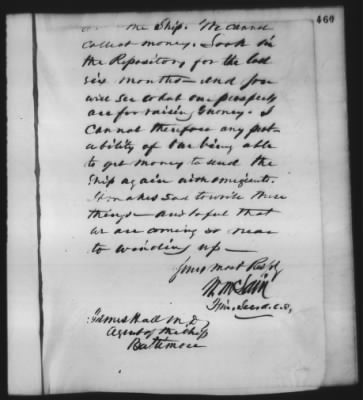 460
the Ship. We cannot
collect money. Look in
the Repository for the last
six months and you
will see what our prospects
are for raising money. I
Cannot therefore any prob-
ability of our being able
to get money to send the
Ship again with emigrants.
It makes sad to write these
things and to feel that
we are coming so near
to winding up
Yours most Resfy
W. McLain
Fin. Sec. A.C.S.
James Hall M.D.
Agent of the Ship
Baltimore